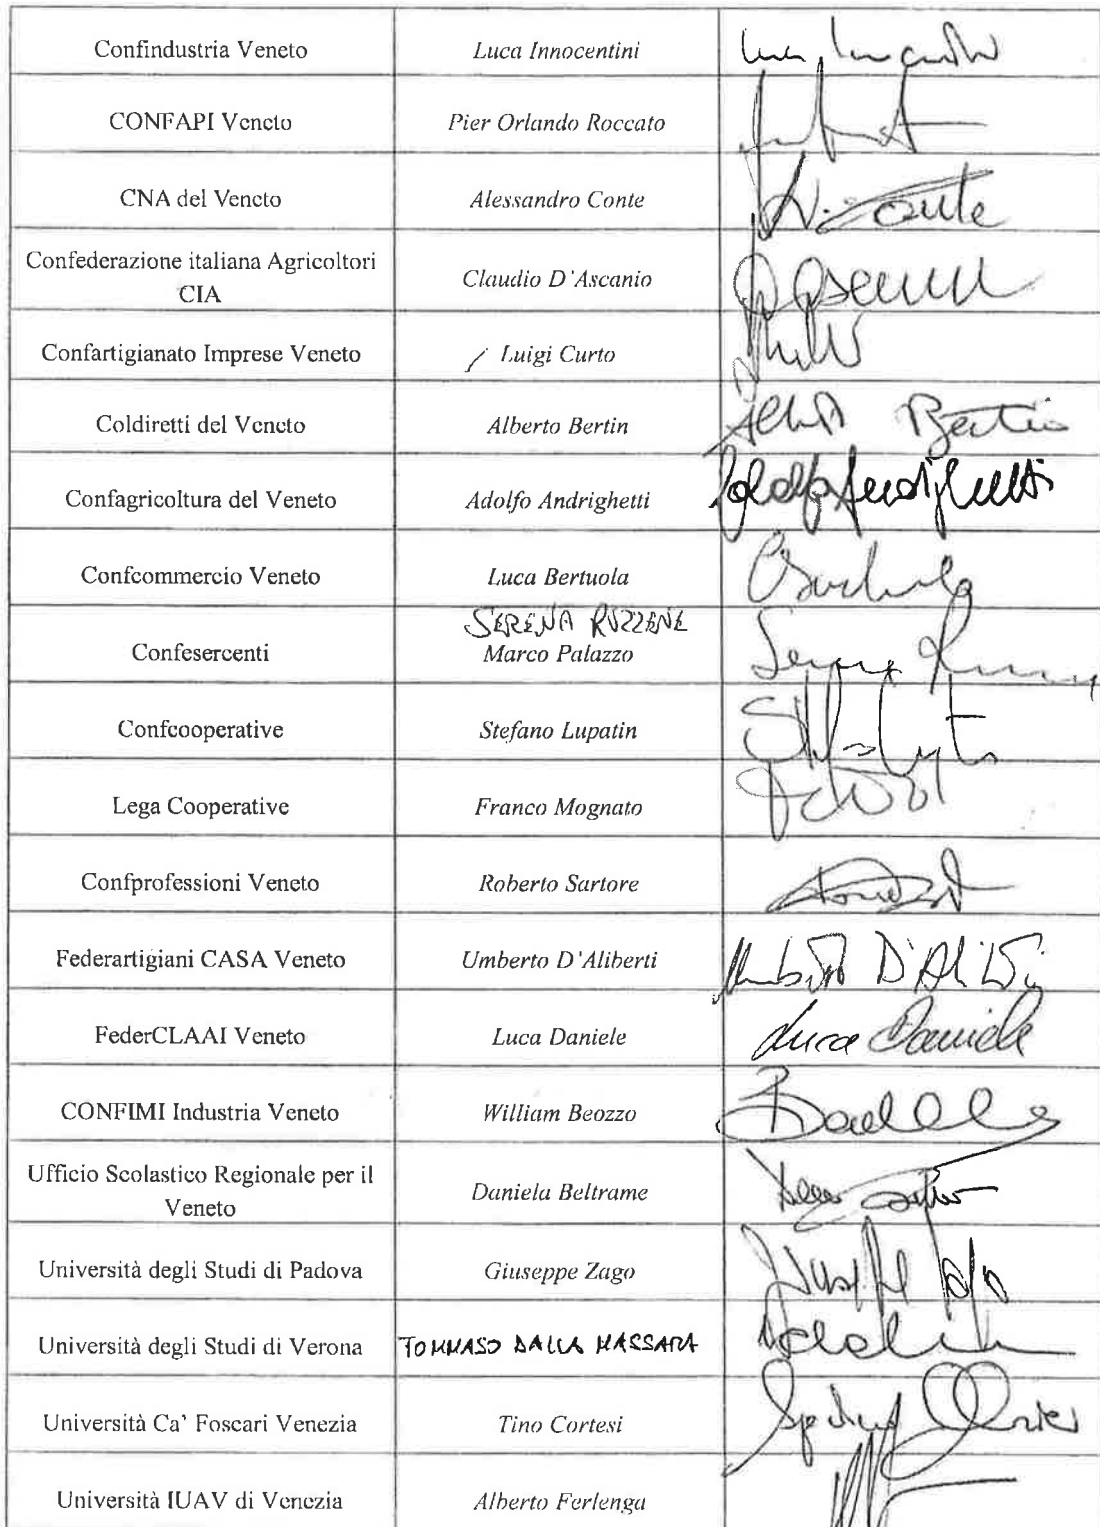 Confindustria Veneto Luca Innocentini
CONFAPI Veneto Pier Orlando Roccato
CNA del Veneto Alessandro Conte A. Conte
Confederazione italiana Agricoltori
CIA Claudio D'Ascanio
Confartigianato Imprese Veneto Luigi Curto
Coldiretti del Veneto Alberto Bertin Bertin
Confagricoltura del Veneto Adolfo Andrighetti Adolfo Andrighetti
Confcommercio Veneto Luca Bertuola
SERENA RUZZENE
Confesercenti Marco Palazzo
Confcooperative Stefano Lupatin
Lega Cooperative Franco Mognato
Confprofessioni Veneto Roberto Sartore
Federartigiani CASA Veneto Umberto D'Aliberti Umberto D'Aliberti
FederCLAAI Veneto Luca Daniele Luca Daniele
CONFIMI Industria Veneto William Beozzo
Ufficio Scolastico Regionale per il
Veneto Daniela Beltrame
Università degli Studi di Padova Giuseppe Zago
Università degli Studi di Verona TOMMASO DALLA MASSARA
Università Ca' Foscari Venezia Tino Cortesi
Università IUAV di Venezia Alberto Ferlenga